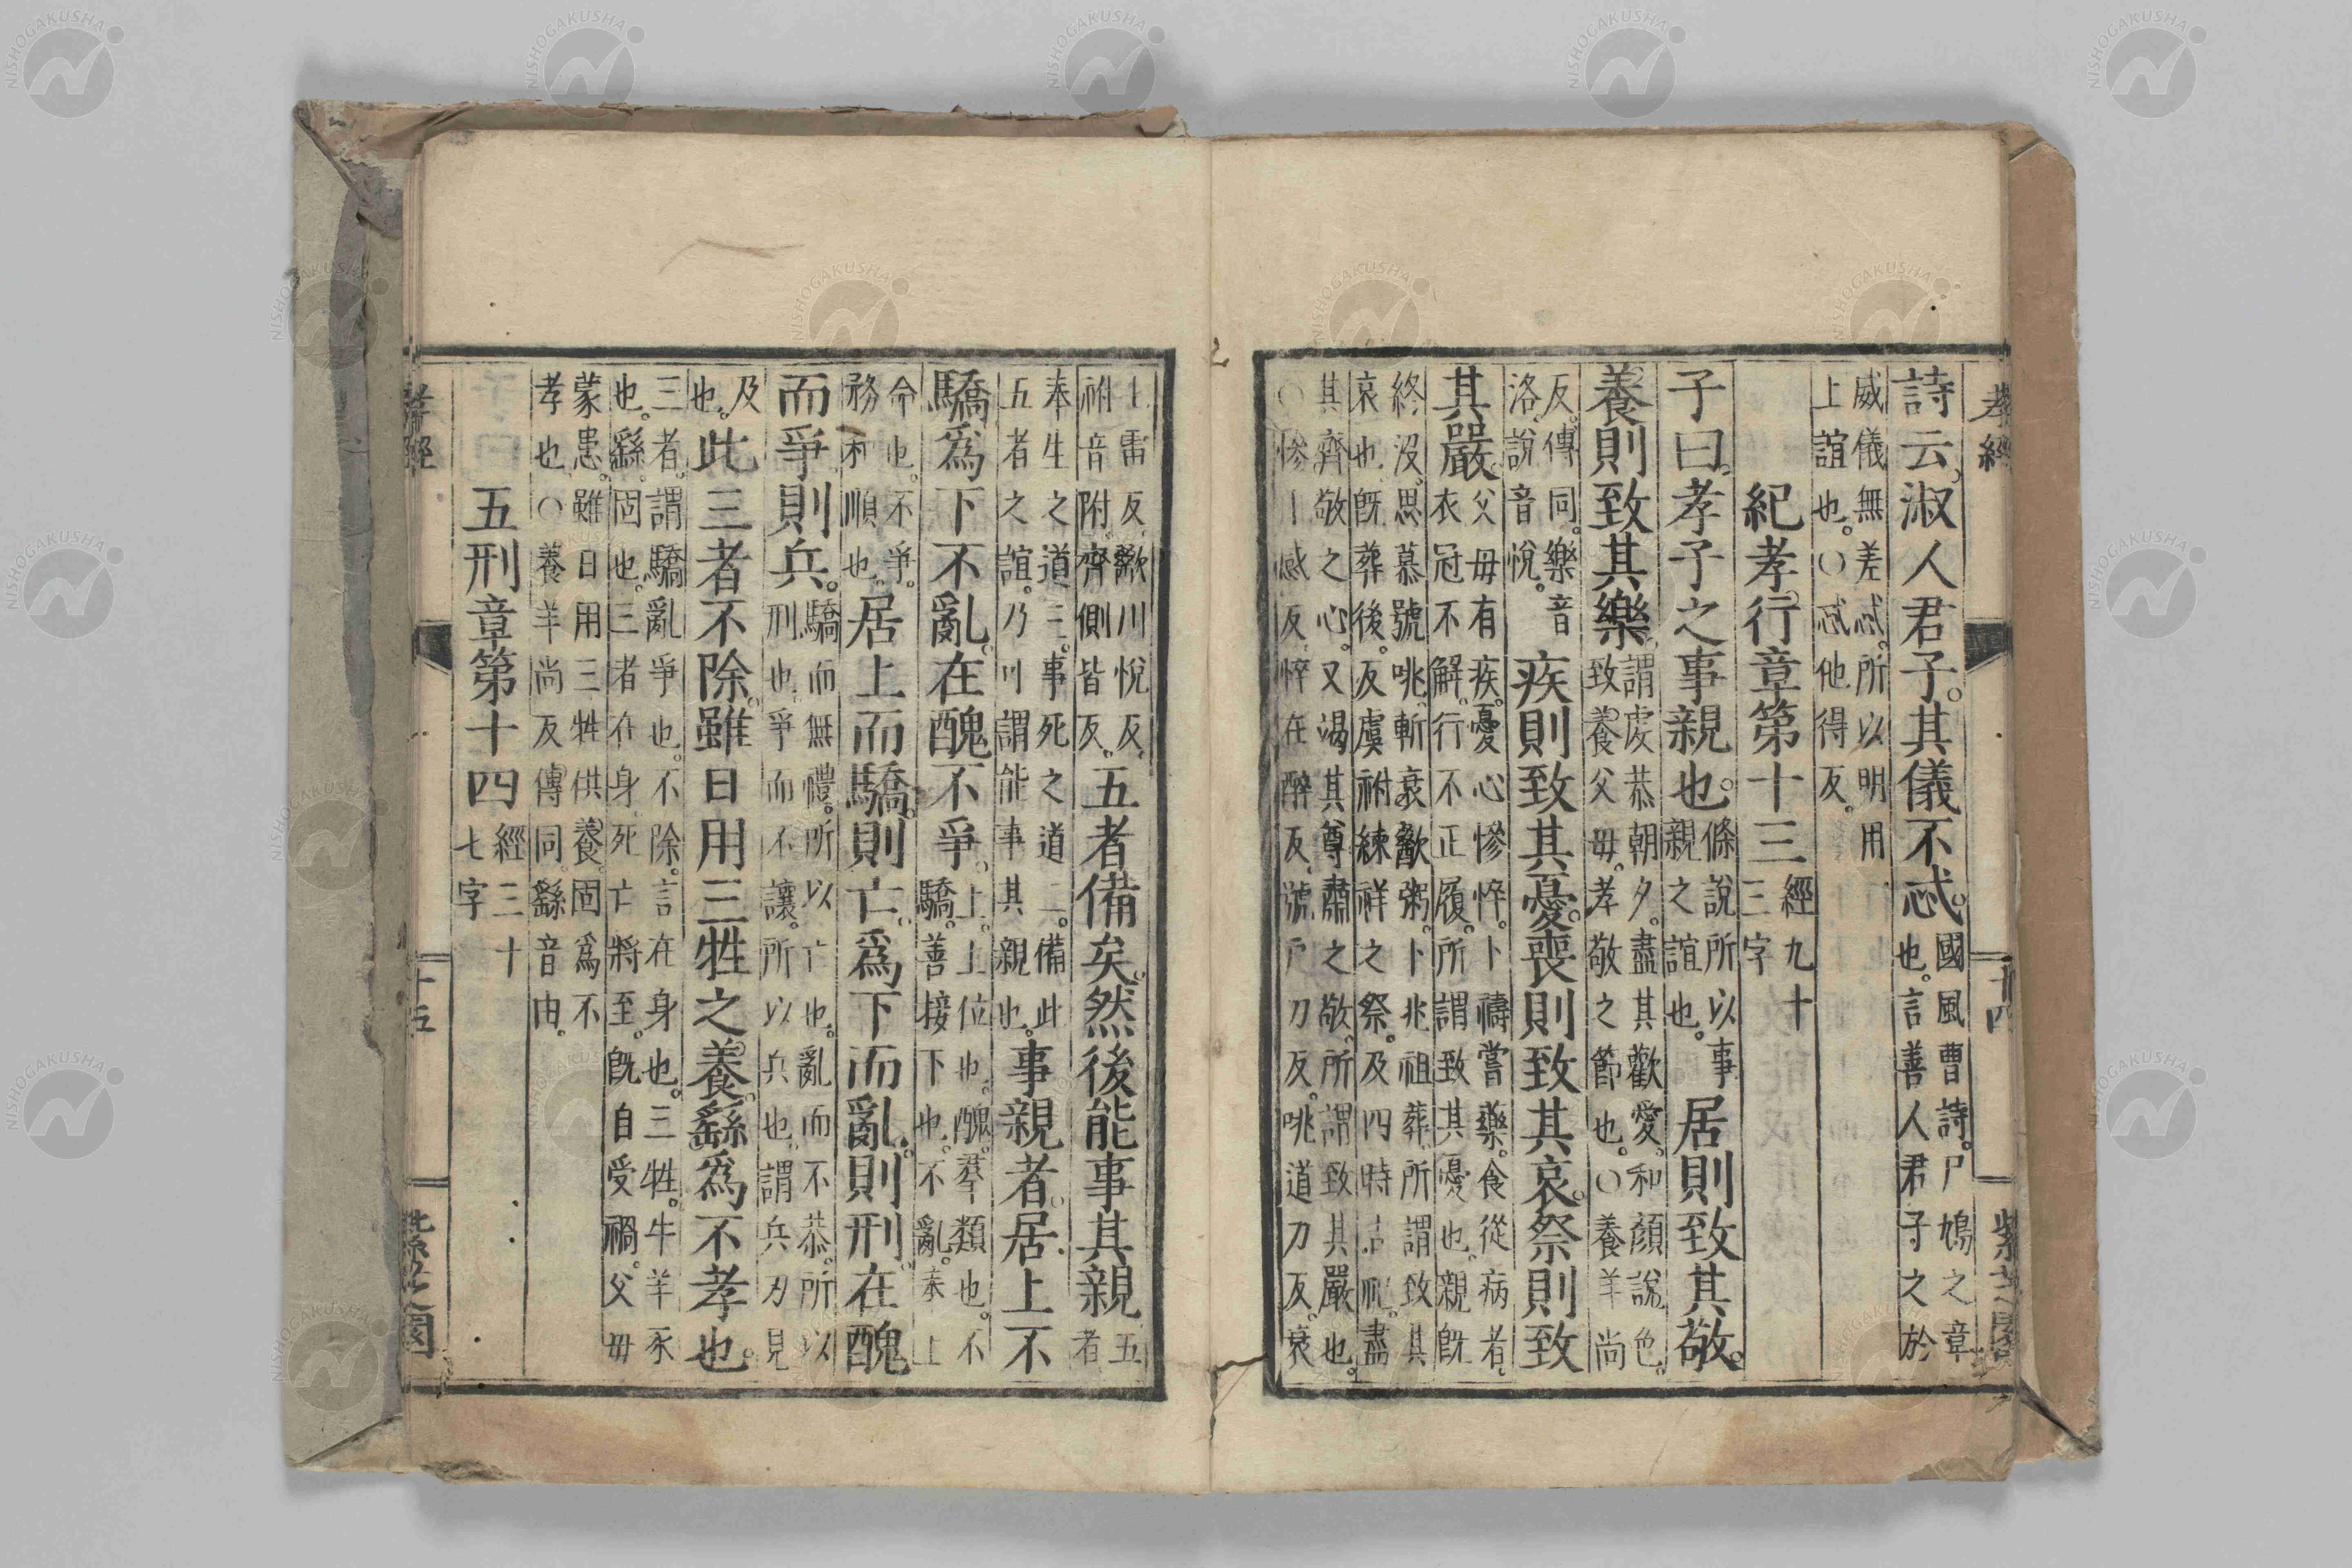 孝經
十四
詩云淑人君子。其儀不忒。國風曹詩。尸鳩之章
也。言善人君子之於
威儀無差忒。所以明用
上誼也。〇忒他得反。
紀孝行章第十三 經九十
三字
子曰。孝子之事親也。條說所以事
親之誼也。居則致其敬。
養則致其樂。謂虔恭朝夕。盡其歡愛。和顏說色。
致養父母。孝敬之節也。〇養羊尚
反。傳同。樂音
洛。說音悅。疾則致其憂。喪則致其哀。祭則致
其嚴。父母有疾。憂心慘悴。卜禱嘗藥。食從病者。
衣冠不解。行不正履。所謂致其憂也。親既
終沒。思慕號咷。斬衰歠粥。卜兆祖葬。所謂致其
哀也。既葬後。反虞祔練祥之祭。及四時吉祀。盡
其齊敬之心。又竭其尊肅之敬。所謂致其嚴也。
〇慘 感反。悴在醉反。號戶刀反。咷道刀反。衰
雷反。歠川悅反。
祔音附。齊側皆反。五者備矣。然後能事其親。五
者
奉生之道三。事死之道二。備此
五者之誼。乃可謂能事其親也。事親者。居上不
驕。爲下不亂。在醜不爭。上。上位也。醜。羣類也。不
驕。善接下也。不亂。奉上
命也。不爭。
務和順也。居上而驕。則亡。爲下而亂。則刑。在醜
而爭。則兵。驕而無禮。所以亡也。亂而不恭。所以
刑也。爭而不讓。所以兵也。謂兵刃見
及
也。此三者不除。雖日用三牲之養。繇爲不孝也。
三者。謂驕亂爭也。不除。言在身也。三牲。牛羊豕
也。繇。固也。三者在身。死亡將至。既自受禍。父母
蒙患。雖日用三牲供養。固爲不
孝也。〇養羊尚反。傳同。繇音由。
五刑章第十四 經三十
七字
孝經
十五
紫芝園